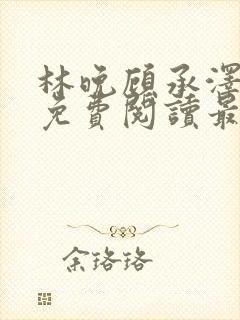 林晚顾承澤
免費閱讀最
余珞珞